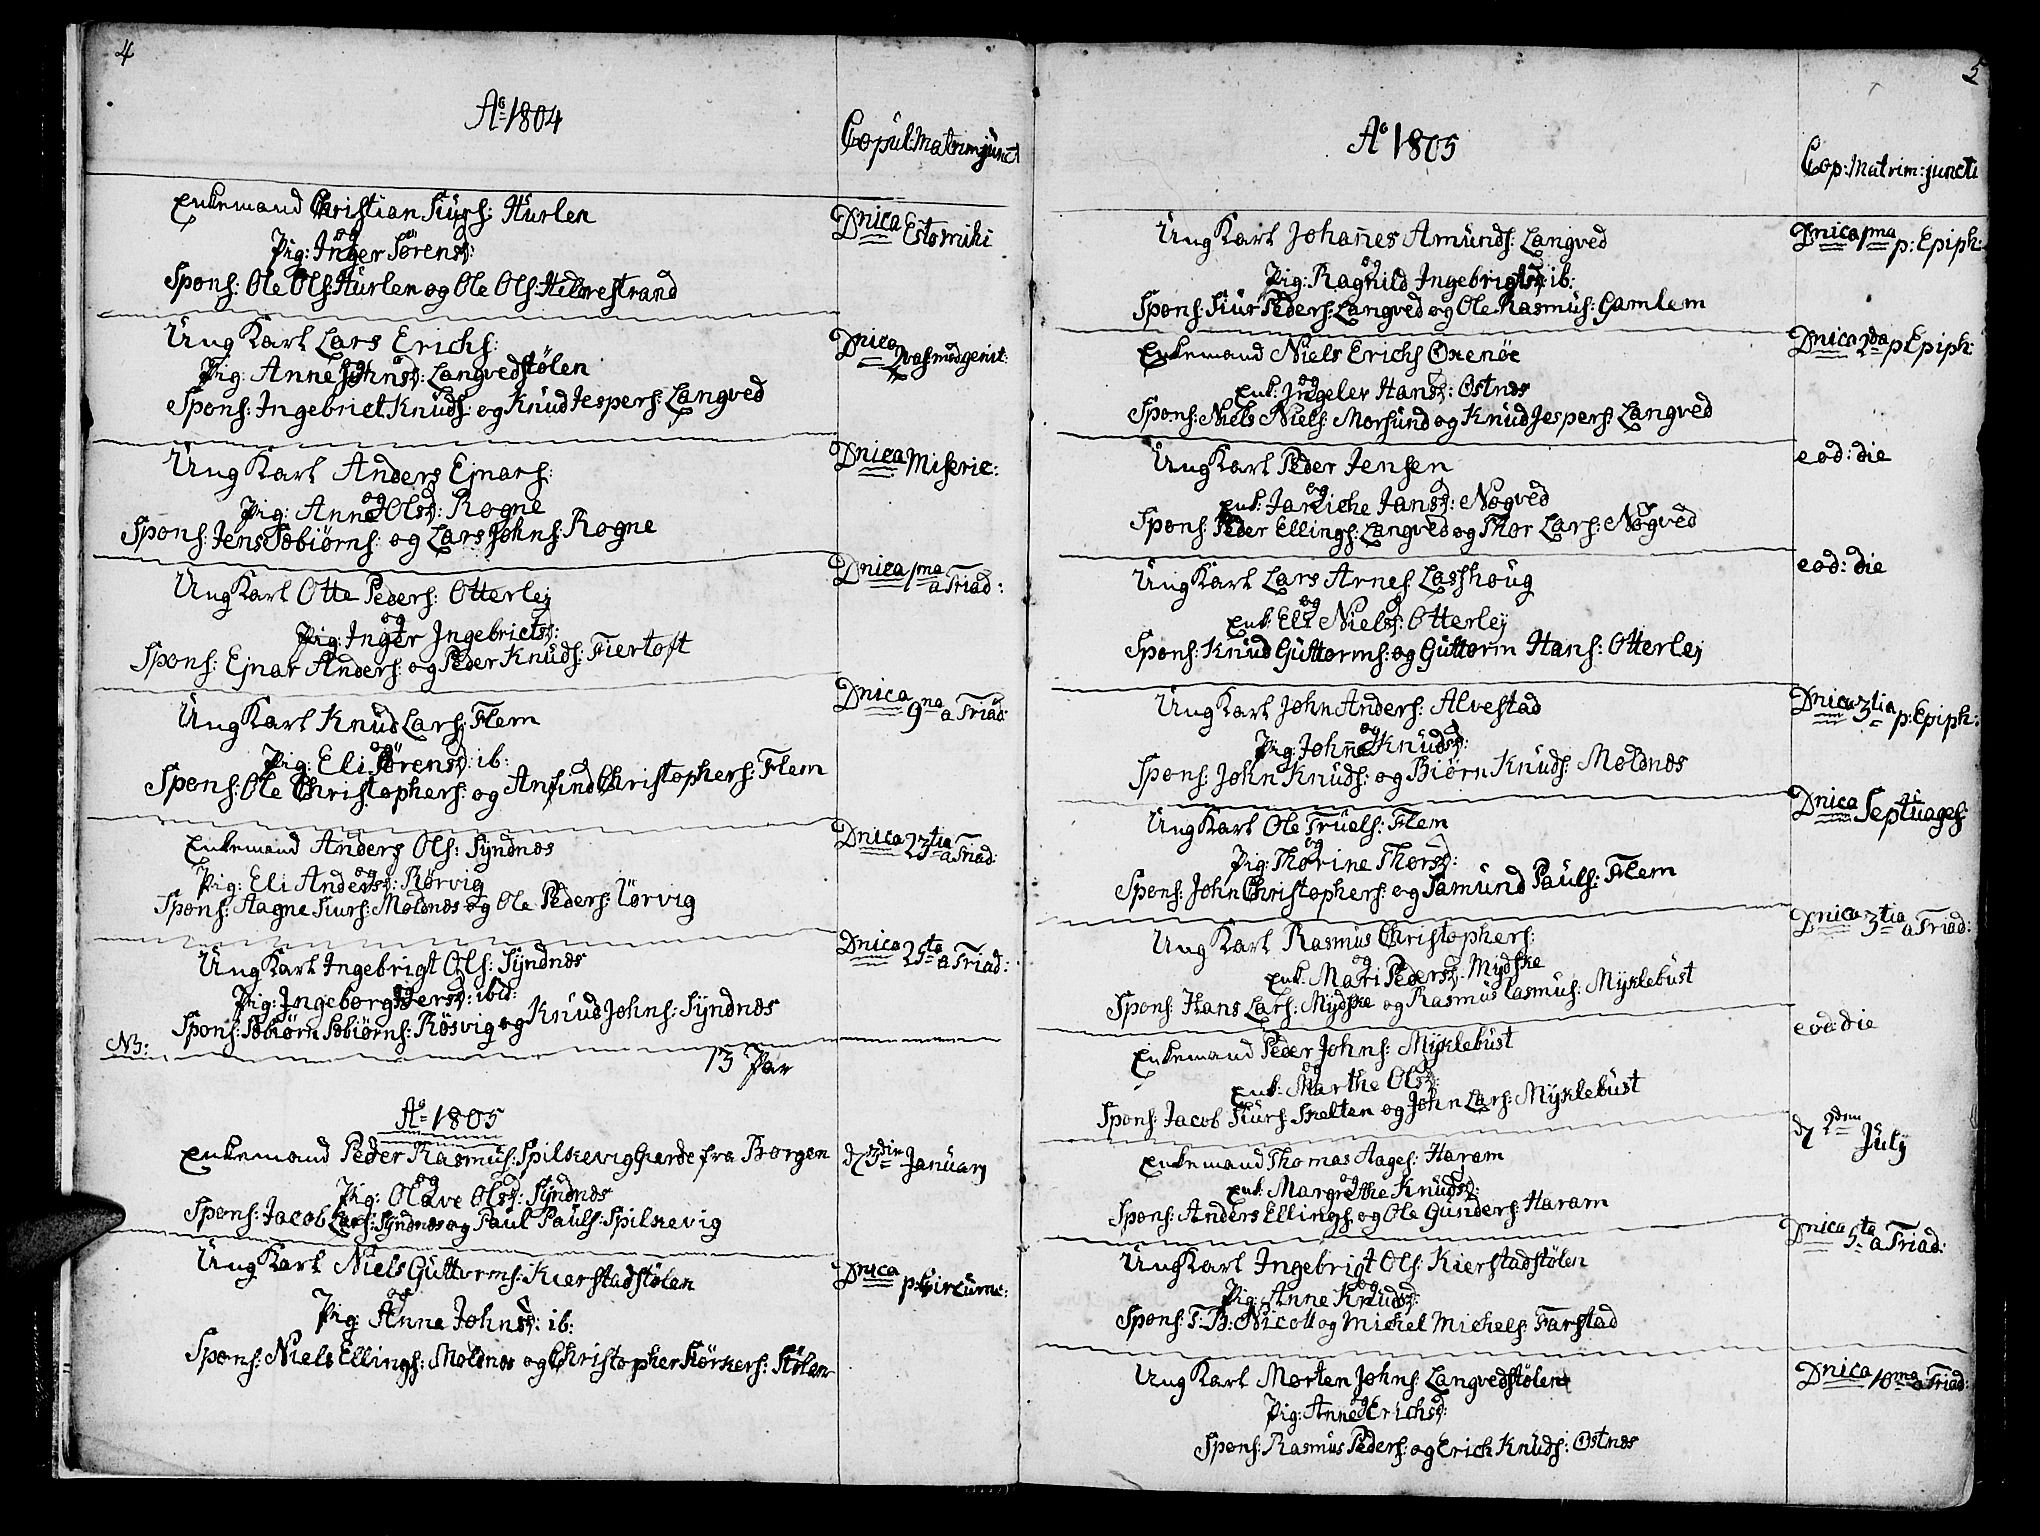 4
Aº 1804
Copul: Matrim: junct
Enkemand Christian Siurs: Hurlen
og
Pig: Inger Sørensd:
Spons: Ole Ols: Hurlen og Ole Ols: Hildrestrand
Dnica Esto mihi
Ung Karl Lars Erichs:
og
Pig: Anne Johnsd: Langvedstølen
Spons: Ingebrict Knuds: og Knud Jespers: Langved
Dnica Qvasimodogenit:
Ung Karl Anders Ejnars:
og
Pig: Anne Olsd: Rogne
Spons: Jens Tobiørns: og Lars Johns: Rogne
Dnica Miseric:
Ung Karl Otte Peders: Otterlej
og
Pig: Inger Ingebrictsd:
Spons: Ejnar Anders: og Peder Knuds: Fiertoft
Dnica 1ma a Triad:
Ung Karl Knud Lars: Flem
og
Pig: Eli Sørensd: ib:
Spons: Ole Christophers: og Anfind Christophers: Flem
Dnica 9na a Triad:
Enkemand Anders Ols: Syndnæs
og
Pig: Eli Andersd: Rørvig
Spons: Aagne Siurs: Moldnæs og Ole Peders: Rørvig
Dnica 23tia a Triad:
Ung Karl Ingebrigt Ols: Syndnæs
og
Pig: Ingeborg Persd: ibid:
Spons: Tobiørn Tobiørns: Røsvig og Knud Johns: Syndnæs
Dnica 25ta a Triad:
NB:
13 Par
Aº 1805
Enkemand Peder Rasmus: Spilkevig Gierde fra Borgen
og
Pig: Olave Olsd: Syndnæs
Spons: Jacob Lars: Syndnæs og Paul Pauls: Spilkevig
d 3die Januarj
Ung Karl Niels Guttorms: Kierstadstølen
og
Pig: Anne Johnsd: ib:
Spons: Niels Ellings: Moldnæs og Christopher Størkers: Stølen
Dnica p: Circumc:
5
Aº 1805
Cop: Matrim: juncti
Ung Karl Johannes Amunds: Langved
og
Pig: Ragnild Ingebrigtsd: ib:
Spons: Siur Peders: Langved og Ole Rasmus: Gamlem
Dnica 1ma p: Epiph:
Enkemand Niels Erichs Oxenøe
og
Enk: Ingeler Hansd: Østnæs
Spons: Niels Niels: Morsund og Knud Jespers: Langved
Dnica 2da p Epiph:
Ung Karl Peder Jensen
og
Enk: Jarliche Jansd: Nogved
Spons: Peder Ellings: Langved og Thor Lars: Nøgved
eod: die
Ung Karl Lars Arnes Lasshoug
og
Enk: Eli Nielsd: Otterlej
Spons: Knud Guttorms: og Guttorm Hans: Otterlej
eod: die
Ung Karl John Anders: Alvestad
og
Pig: Johne Knudsd:
Spons: John Knuds: og Biørn Knuds: Moldnæs
Dnica 3tia p: Epiph:
Ung Karl Ole Truels: Flem
og
Pig: Thorine Thorsd:
Spons: John Christophers: og Samund Pauls: Flem
Dnica Septuages:
Ung Karl Rasmus Christophers:
og
Enk: Mari Pedersd: Mydske
Spons: Hans Lars: Mydske og Rasmus Rasmus: Myklebust
Dnica 3tia a Triad:
Enkemand Peder Johns: Myklebust
og
Enk: Marthe Olsd:
Spons: Jacob Siurs: Skelten og John Lars: Myklebust
eod: die
Enkemand Thomas Aages: Haram
og
Enk: Margrethe Knudsd:
Spons: Anders Ellings: og Ole Gunders: Haram
d 2den July
Ung Karl Ingebrigt Ols: Kierstadstølen
og
Pig: Anne Knudsd:
Spons: T: B: Nicoll og Michel Michels: Farstad
Dnica 5ta a Triad:
Ung Karl Morten Johns: Langvedstølen
og
Pig: Anne Erichsd:
Spons: Rasmus Peders: og Erich Knuds: Østnæs
Dnica 10ma a Triad: